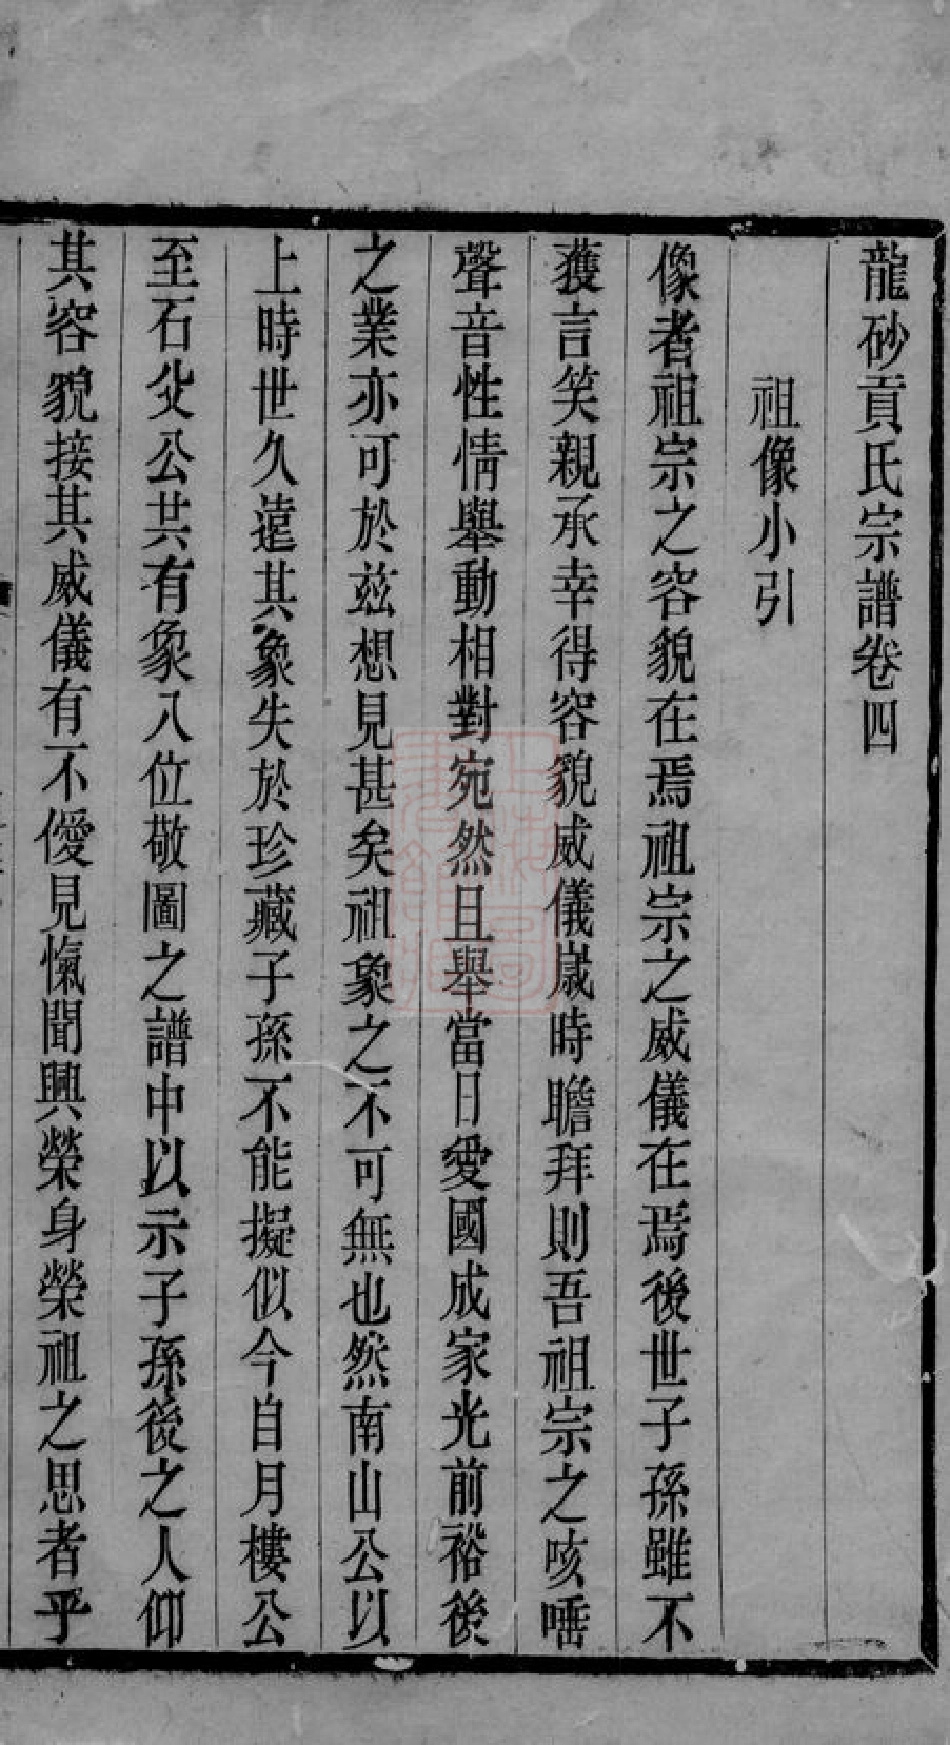 龍砂貢氏宗譜卷四
祖像小引
像者祖宗之容貌在焉祖宗之威儀在焉後世子孫雖不
獲言笑親承幸得容貌威儀歲時瞻拜則吾祖宗之咳唾
聲音性情舉動相對宛然且舉當日愛國成家光前裕後
之業亦可於茲想見甚矣祖象之不可無也然南山公以
上時世久遠其象失於珍藏子孫不能擬似今自月樓公
至石父公共有象八位敬圖之譜中以示子孫後之人仰
其容貌接其威儀有不僾見愾聞興榮身榮祖之思者乎
上海圖書館藏